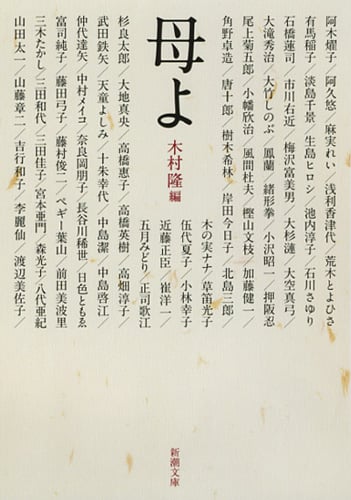 母よ
木村隆 編
阿木燿子／阿久悠／麻実れい／浅利香津代／荒木とよひさ
有馬稲子／淡島千景／生島ヒロシ／池内淳子／石川さゆり
石橋蓮司／市川右近／梅沢富美男／大杉漣／大空真弓
大滝秀治／大竹しのぶ／鳳蘭／緒形拳／小沢昭一／押阪忍
尾上菊五郎／小幡欣治／風間杜夫／樫山文枝／加藤健一／
角野卓造／唐十郎／樹木希林／岸田今日子／北島三郎／
木の実ナナ／草笛光子
伍代夏子／小林幸子
近藤正臣／崔洋一／
五月みどり／正司歌江
杉良太郎／大地真央／高橋惠子／高橋英樹／高畑淳子／
武田鉄矢／天童よしみ／十朱幸代／中島潔／中島啓江／
仲代達矢／中村メイコ／奈良岡朋子／長谷川稀世／日色ともゑ
富司純子／藤田弓子／藤村俊二／ペギー葉山／前田美波里
三木たかし／三田和代／三田佳子／宮本亜門／森光子／八代亜紀
山田太一／山藤章二／吉行和子／李麗仙／渡辺美佐子／
新潮文庫